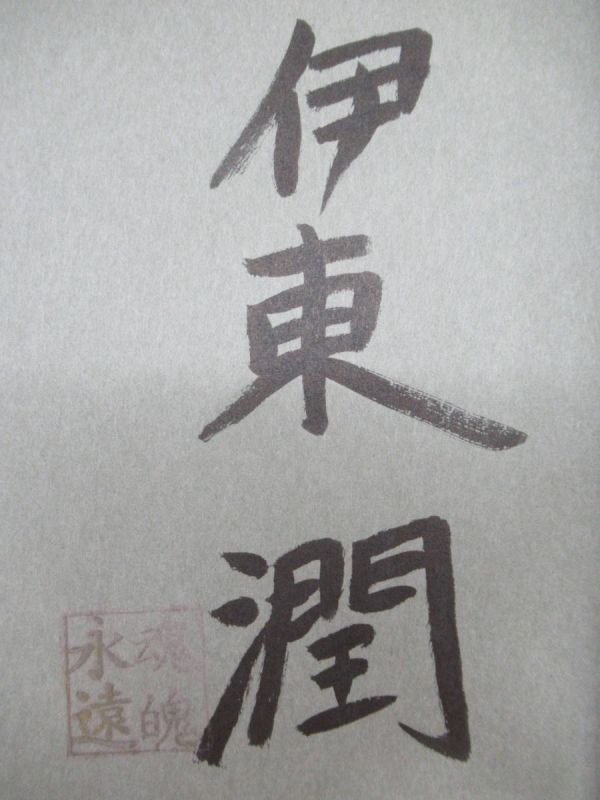 伊東潤
魂魄
永遠